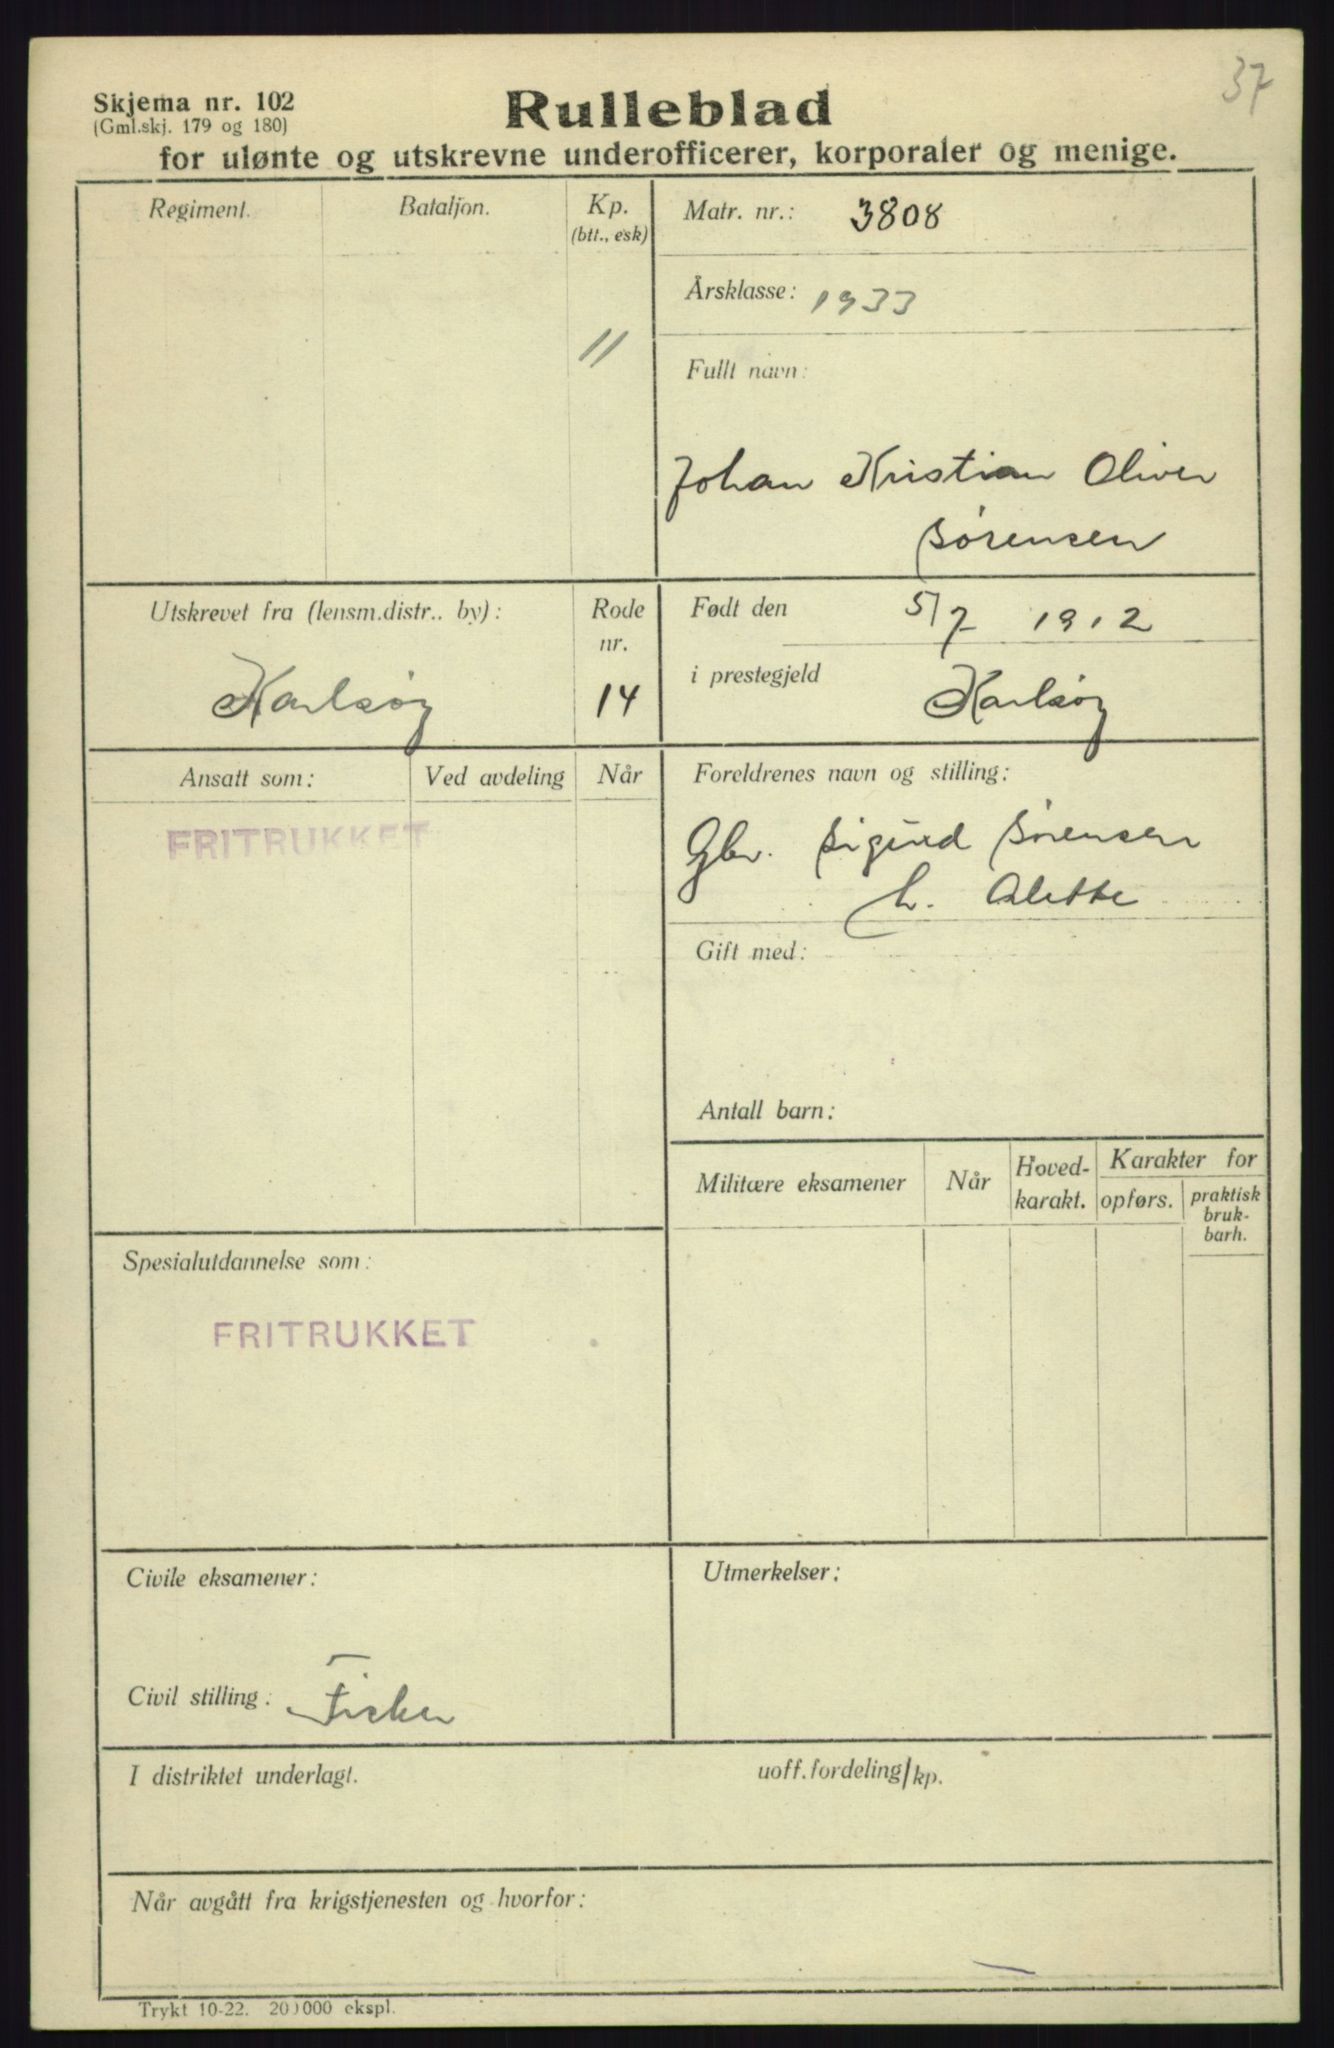 37
Skjema nr. 102
(Gml.skj. 179 og 180)
Rulleblad
for ulønte og utskrevne underofficerer, korporaler og menige.
Regiment.
Bataljon.
Kp.
(btt., esk)
11
Matr. nr.: 3808
Årsklasse: 1933
Fullt navn:
Johan Kristian Oliver
Sørensen
Utskrevet fra (lensm.distr.. by):
Karlsøy
Rode
nr.
14
Født den 5/7 1912
i prestegjeld Karlsøy
Ansatt som:
Ved avdeling
Når
FRITRUKKET
Foreldrenes navn og stilling:
Gbr. Sigurd Sørensen
h. Alette
Gift med:
Antall barn:
Militære eksamener
Når
Hoved-
karakt.
Karakter for
opførs.
praktisk
bruk-
barh.
Spesialutdannelse som:
FRITRUKKET
Civile eksamener:
Civil stilling: Fisker
Utmerkelser:
I distriktet underlagt.
uoff.fordeling/kp.
Når avgått fra krigstjenesten og hvorfor:
Trykt 10-22. 200000 ekspl.